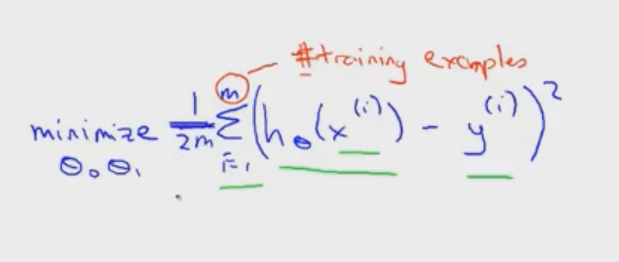 #training examples
minimize 1/2m m Σ i=1 (hθ(x^(i)) - y^(i))^2
θ₀ θ₁